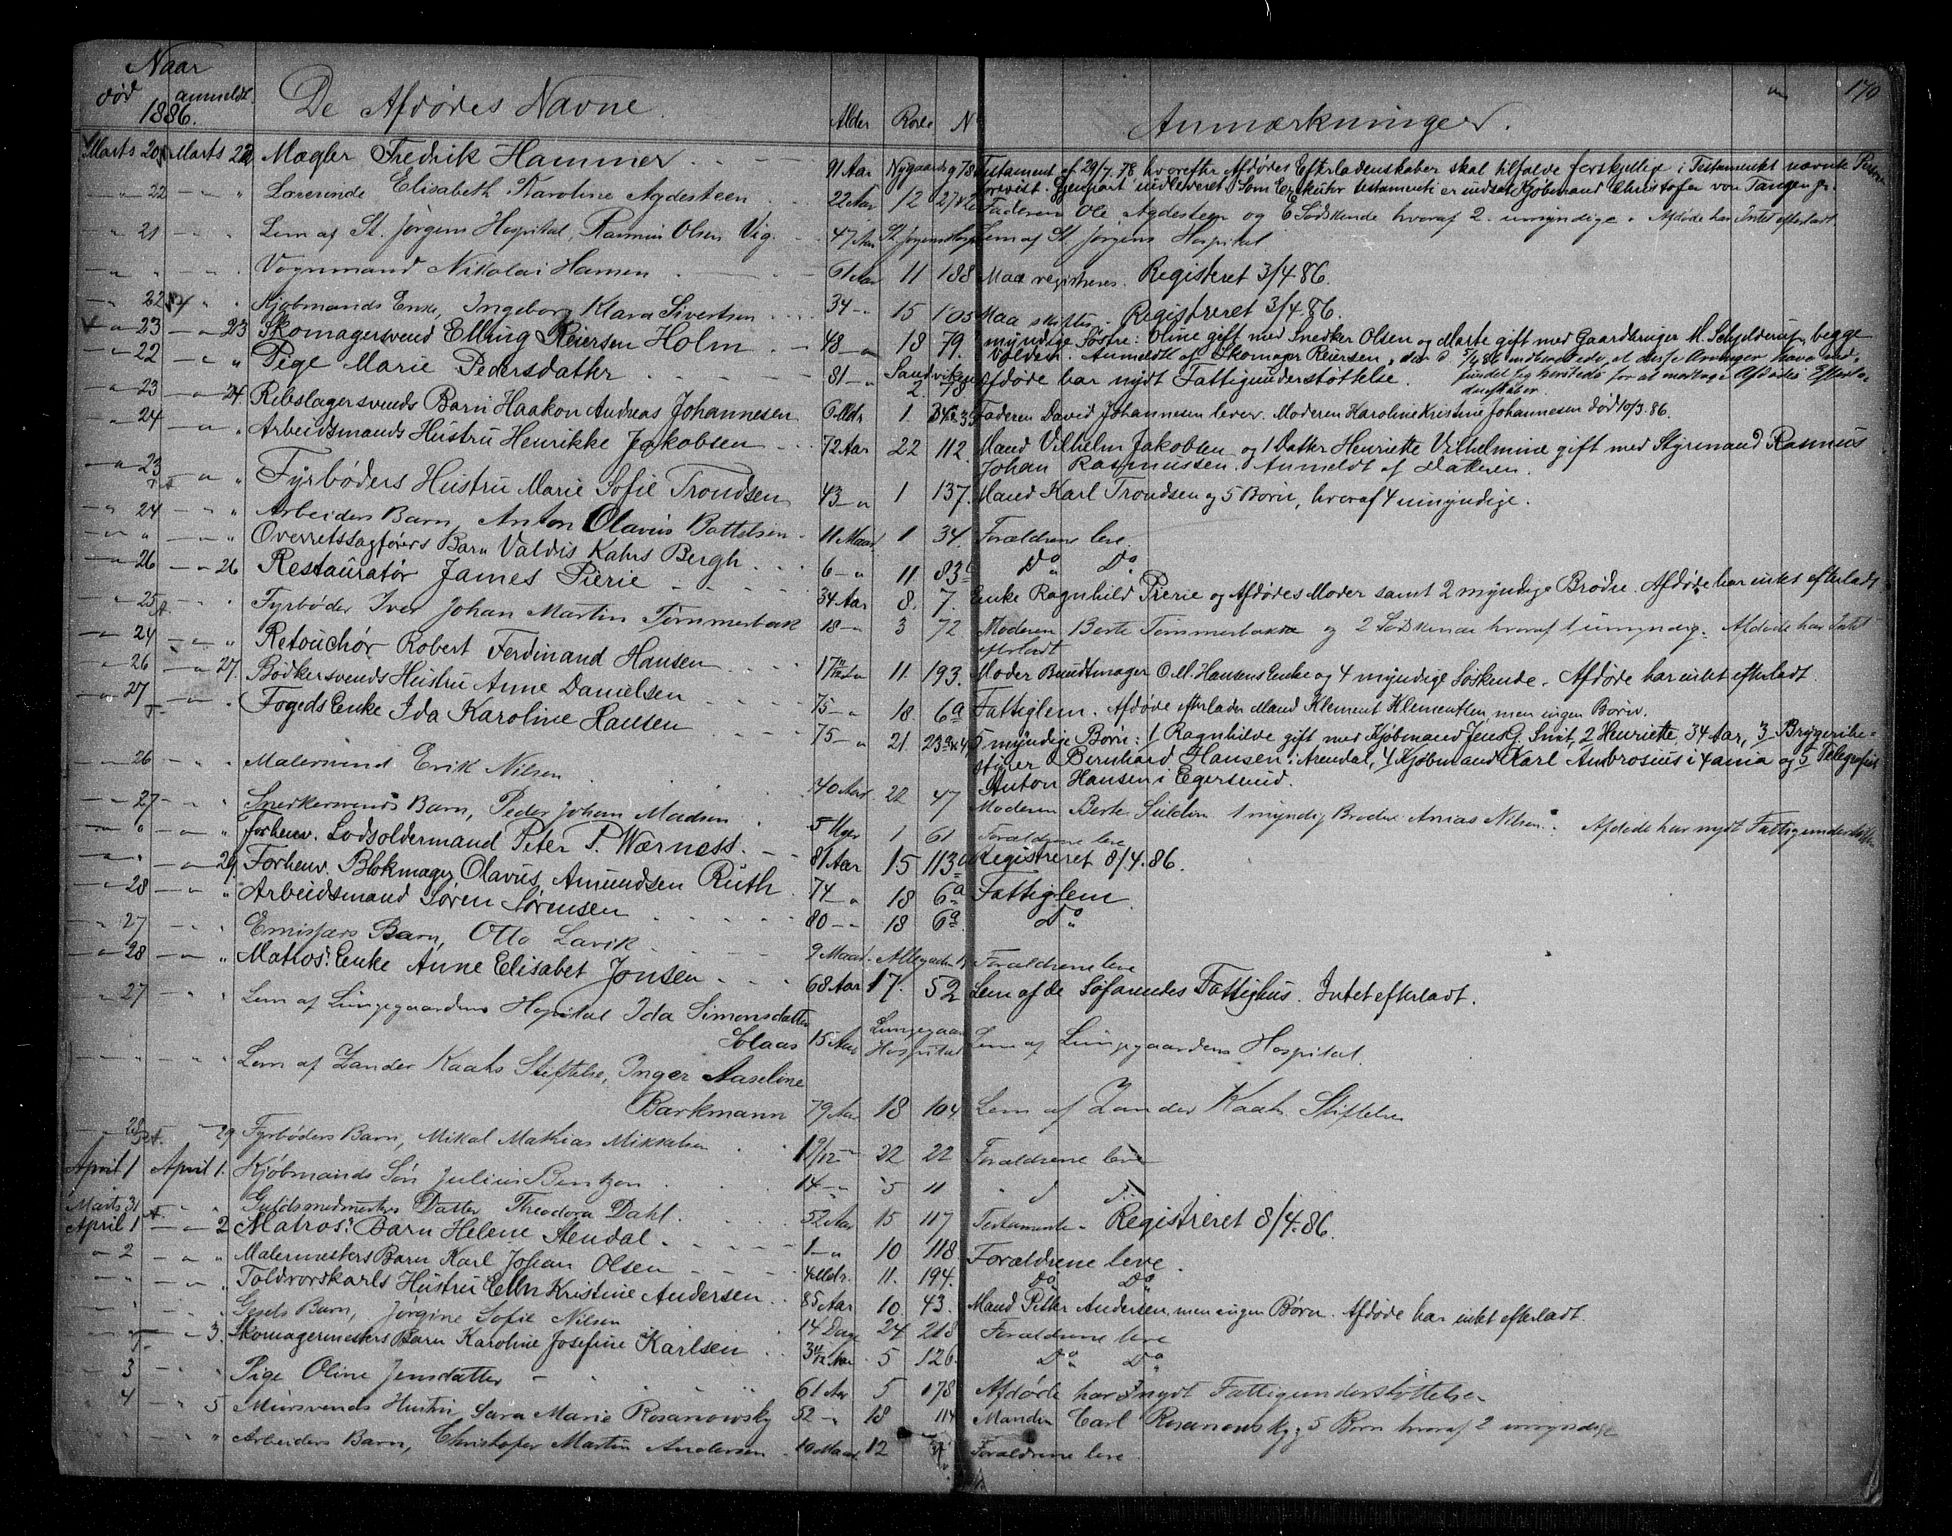 Naar
død anmeldt
1886.
De Afdødes Navne. Alder Rode N Anmærkninger. 170
Marts 20 Marts 22 Mægler Fredrik Hammer 91 Aar Nygaardsg 78 Testament af 29/7.78 hvorefter Afdødes Efterladenskaber skal tilfalde forskjellige i Testamentet nævnte
forevist. Gjenpart indleveret. Som Exekutor testamenti er indsat Kjøbmand Christofer von Tangen jr.
" 22 " " Lærerinde Elisabeth Karoline Agdesteen 22 Aar 12 Faderen Ole Agdesteen og 6 Sødskende hvoraf 2 umyndige. Afdøde har Intet efterladt.
" 21 " " Lem af St. Jørgens Hospital, Rasmus Olsen Vig 47 Aar St. Jørgens Hosp. Lem af St. Jørgens Hospital
" " " " Vognmand Nikolai Hansen 61 Aar 11 188 Maa registreres. Registreret 3/4.86.
22 " " Kjøbmands Enke, Ingeborg Klara Sivertsen 34 " 15 105 Maa skiftes. Registreret 3/4.86.
" 23 " 23 Skomagersvend Elling Reiersen Holm 48 " 18 79. myndige Søstre: Oline gift med Snedker Olsen og Marte gift med Gaardbruger M. Schjelderup, begge
Volden. Anmeldt af Skomager Reiersen
" 22 " " Pige Marie Pedersdatter 81 " Sandviken Afdøde har nydt Fattigunderstøttelse.
" 23 " 24. Rebslagersvends Barn Haakon Andreas Johannesen 6 Mdr. 1. Faderen David Johannesen lever. Moderen Karoline Kristine Johannesen død 10/3.86.
" 24 " " Arbeidsmands Hustru Henrikke Jakobsen 72 Aar 22 112. Mand Vilhelm Jakobsen og 1 Datter Henriette Vilhelmine gift med Styrmand Rasmus
Johan Rasmussen. Anmeldt af Datteren.
" 23 " " Fyrbøders Hustru Marie Sofie Trondsen 43 " 1 137. Mand Karl Trondsen og 5 Børn, hvoraf 4 umyndige.
" 24 " " Arbeiders Barn, Anton Olavus Battelsen 11 Maan. 1 34. Forældrene leve.
" " " " Overretssagførers Barn Valdis Kahrs Bergh 6 " 11 83 Do Do
" 26 " 26 Restauratør James Pierie 34 Aar 8. 7. Enke Ragnhild Pierie og Afdødes Moder samt 2 myndige Brødre. Afdøde har intet efterladt.
" 25 " " Fyrbøder Iver Johan Martin Tømmerbak 18 " 3 72 Moderen Berte Tømmerbakke og 2 Sødskende hvoraf 1 umyndig. Afdøde har Intet
efterladt
" 24 " " Retouchør Robert Ferdinand Hansen 17 11. 193. Moder Bundtmager O. M. Hansens Enke og 4 myndige Søskende. Afdøde har intet efterladt.
" 26 " 27. Bødkersvends Hustru Anne Danielsen 75 " 18 6a Fattiglem. Afdøde efterlader Mand Klement Klementsen, men ingen Børn.
" 27 " " Fogeds Enke Ida Karoline Hansen 75 " 21. 5 myndige Børn: 1 Ragnhilde gift med Kjøbmand Jens G. Smit, 2 Henriette 34 Aar, 3 Bryggeribe-
styrer Bernhard Hansen i Arendal, 4 Kjøbmand Karl Ambrosius i Xania og 5 Telegrafist
Anton Hansen i Egersund.
" 26 Malersvend Erik Nilsen 40 Aar 22 47 Moderen Berte 1 myndig Broder Anias Nilsen. Afdøde har nydt Fattigunderstøttelse
" 27 " " Snekersvends Barn, Peder Johan Madsen 5 Uger 1 61 Forældrene leve
" " " " Forhenv. Lodsoldermand Peter P. Wærness. 81 Aar 15 113 Registreret 8/4.86.
" " " 29. Forhenv. Blokmager Olavus Amundsen Ruth 74 " 18 6a Fattiglem.
" 28 " " Arbeidsmand Søren Sørensen 80 " 18 6a Do
" 27 " " Emissærs Barn, Otto Lavik 9 Maan. Allegaden Forældrene leve
" 28 " " Matros. Enke Anne Elisabet Jonsen 68 Aar 17. 52 Lem af de Søfarendes Fattighus. Intet efterladt.
" 27 " " Lem af Lungegaardens Hospital Ida Simonsdatter
Solaas 15 Aar Lungegaar Hospital Lem af Lungegaardens Hospital
" " " " Lem af Zander Kaahs Stiftelse, Inger Aaseline
Barkmann 79 Aar 18 104 Lem af Zander Kaahs Stiftelse
" 28 " 29 Fyrbøders Barn, Mikal Mathias Mikkelsen 22 22 Forældrene leve
April 1 April 1. Kjøbmands Søn Julius Bentzon 14 " 5 11 " d d:
Marts 31 " " Guldsmedmesters Datter Theodora Dahl. 52 Aar 15 117 Testamente. Registreret 8/4.86.
April 1 " 2 Matros. Barn Helene Stendal 1 " 10 118. Forældrene leve.
" 2 " " Malermesters Barn Karl Johan Olsen 4 Mdr. 11. 194. Do Do
" " " " Toldvorskarls Hustru Ellen Kristine Andersen 85 Aar 10. 43. Mand Petter Andersen, men ingen Børn. Afdøde har intet efterladt.
" " " " Barn, Jørgine Sofie Nilsen 14 Dage 24 218 Forældrene leve
" " " 3. Skomagermesters Barn Karoline Josefine Karlsen 5 126. Do Do
3 " " Pige Oline Jensdatter 61 Aar 5 178 Afdøde har nydt Fattigunderstøttelse
4 " 5 Mursvends Hustru Sara Marie Rosanowsky 52 " 18 114 Manden Carl Rosanowsky, 5 Børn hvoraf 2 umyndige
" " " " Arbeiders Barn, Christofer Martin Andersen 10 Maan. 12 Forældrene leve.